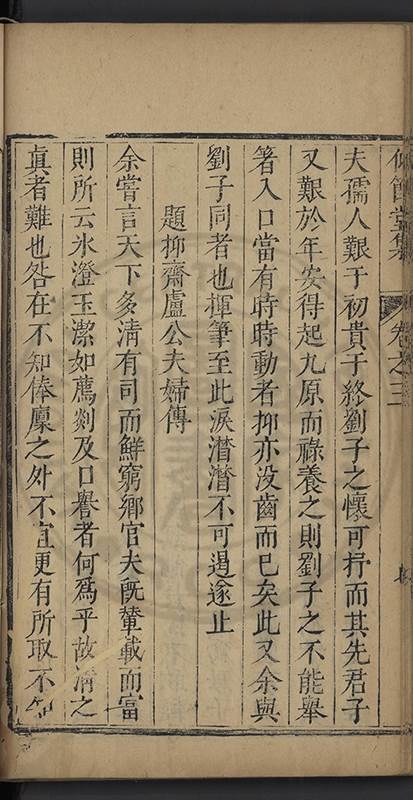 仰節堂集 卷之三
夫孺人艱于初貴于終劉子之懷可抒而其先君子
又艱於年安得起九原而祿養之則劉子之不能舉
箸入口當有時時動者抑亦沒齒而已矣此又余與
劉子同者也揮筆至此淚潸潸不可遏遂止
題抑齋盧公夫婦傳
余嘗言天下多清有司而鮮窮鄉官夫旣輦載而富
則所云氷澄玉潔如薦剡及口譽者何爲乎故清之
眞者難也咎在不知俸廩之外不宜更有所取不知